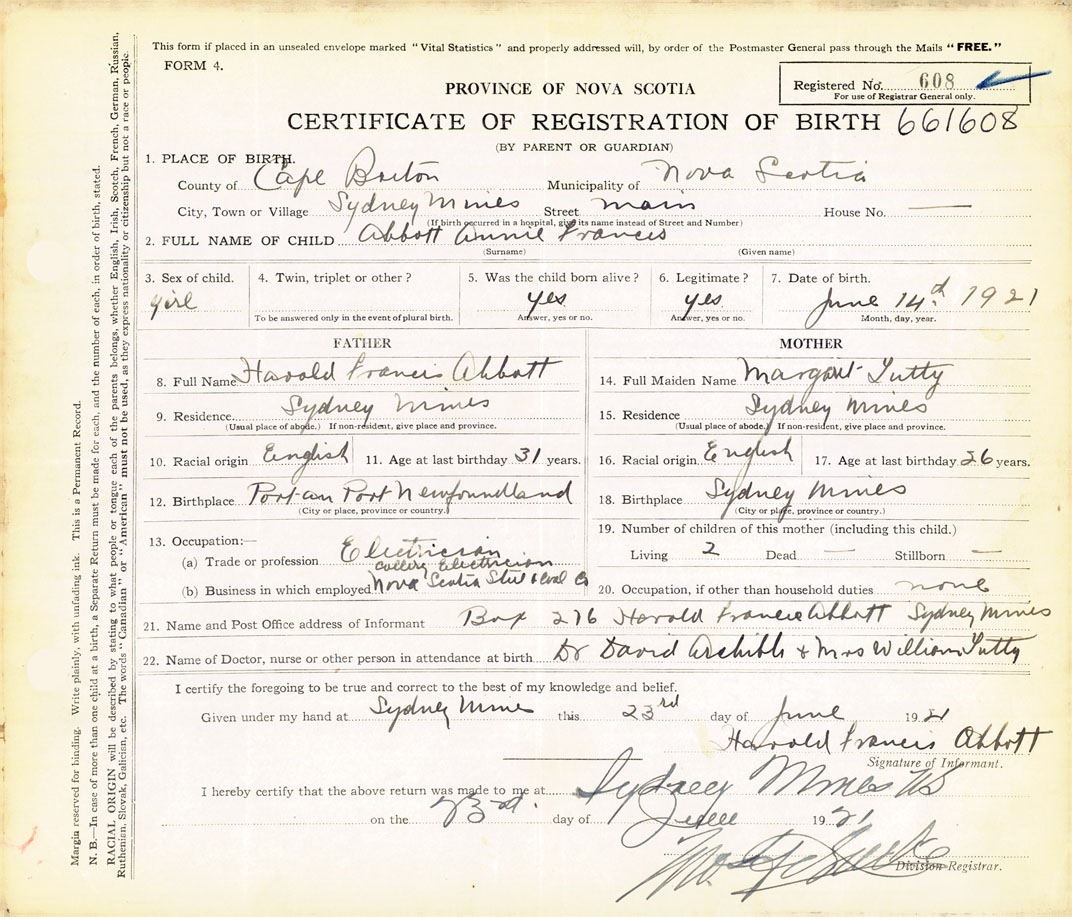 This form if placed in an unsealed envelope marked "Vital Statistics" and properly addressed will, by order of the Postmaster General pass through the Mails "FREE."
FORM 4.
Registered No. 608
For use of Registrar General only.
PROVINCE OF NOVA SCOTIA
CERTIFICATE OF REGISTRATION OF BIRTH 661608
(BY PARENT OR GUARDIAN)
1. PLACE OF BIRTH.
County of Cape Breton Municipality of Nova Scotia
City, Town or Village Sydney Mines Street main House No. —
(If birth occurred in a hospital, give its name instead of Street and Number)
2. FULL NAME OF CHILD Abbott Annie Francis
(Surname) (Given name)
3. Sex of child. 4. Twin, triplet or other? 5. Was the child born alive? 6. Legitimate? 7. Date of birth.
girl yes yes June 14th 1921
To be answered only in the event of plural birth. Answer, yes or no. Answer, yes or no. Month, day, year.
FATHER MOTHER
8. Full Name Harold Francis Abbott 14. Full Maiden Name Margaret Tutty
9. Residence Sydney Mines 15. Residence Sydney Mines
(Usual place of abode.) If non-resident, give place and province. (Usual place of abode.) If non-resident, give place and province.
10. Racial origin English 11. Age at last birthday 31 years. 16. Racial origin English 17. Age at last birthday 26 years.
12. Birthplace Port-au Port Newfoundland 18. Birthplace Sydney Mines
(City or place, province or country.) (City or place, province or country.)
13. Occupation:— 19. Number of children of this mother (including this child.)
(a) Trade or profession Electrician Living 2 Dead — Stillborn —
Colliery Electrician
(b) Business in which employed Nova Scotia Steel & Coal Co 20. Occupation, if other than household duties none
21. Name and Post Office address of Informant Box 276 Harold Francis Abbott Sydney Mines
22. Name of Doctor, nurse or other person in attendance at birth Dr David Archibls & Mrs William Tutty
I certify the foregoing to be true and correct to the best of my knowledge and belief.
Given under my hand at Sydney Mines this 23rd day of June 1921
Harold Francis Abbott
Signature of Informant.
I hereby certify that the above return was made to me at Sydney Mines NS
on the 23rd. day of June 1921
Division Registrar.
Margin reserved for binding. Write plainly, with unfading ink. This is a Permanent Record.
N. B.—In case of more than one child at a birth, a Separate Return must be made for each, and the number of each, in order of birth, stated.
RACIAL ORIGIN will be described by stating to what people or tongue each of the parents belongs, whether English, Irish, Scotch, French, German, Russian,
Ruthenian, Slovak, Galician, etc. The words "Canadian" or "American" must not be used, as they express nationality or citizenship but not a race or people.